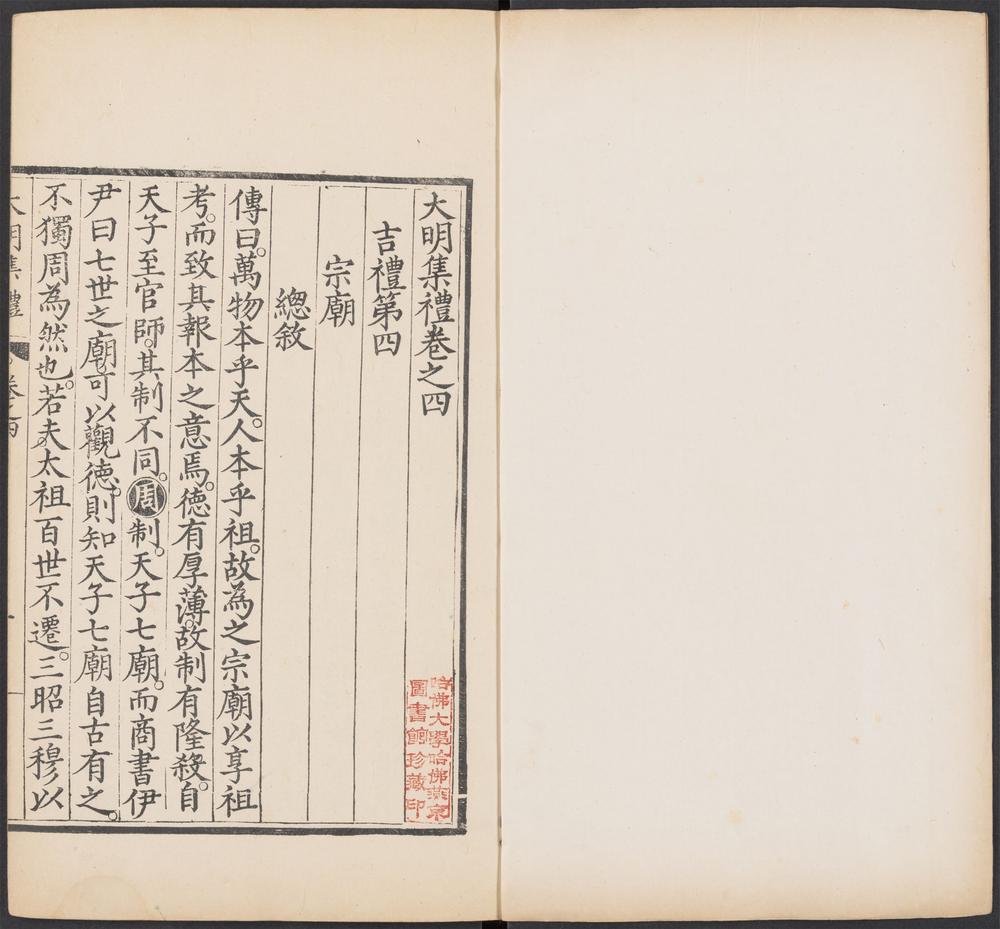 大明集禮卷之四
吉禮第四
宗廟
總敘
傳曰。萬物本乎天。人本乎祖。故為之宗廟以享祖
考。而致其報本之意焉。德有厚薄。故制有隆殺。自
天子至官師。其制不同。周制。天子七廟。而商書伊
尹曰七世之廟。可以觀德。則知天子七廟自古有之。
不獨周為然也。若夫太祖百世不遷。三昭三穆以
大明集禮 卷之四 一
哈佛大學哈佛燕京
圖書館珍藏印